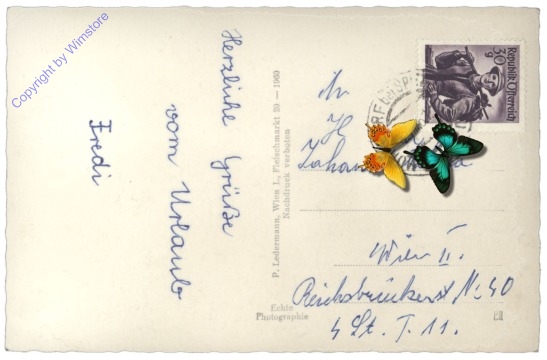 Copyright by Wimstore
Herzliche Grüße
vom Urlaub
Fredi
P. Ledermann, Wien I., Fleischmarkt 20 — 1969
Nachdruck verboten
Echte
Photographie
30
g
Republik Österreich
An
H
Johann
Wien II.
Reichsbrückenst No 40
4 St. T. 11.